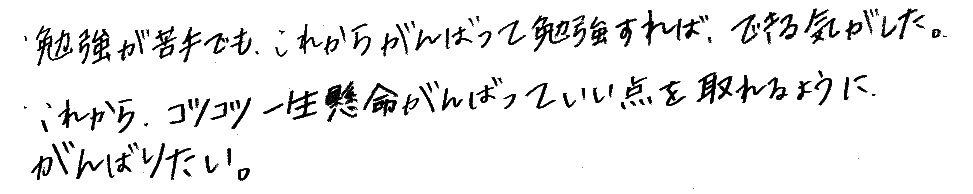 勉強が苦手でも、これからがんばって勉強すれば、できる気がした。
これから、コツコツ一生懸命がんばっていい点を取れるように
がんばりたい。